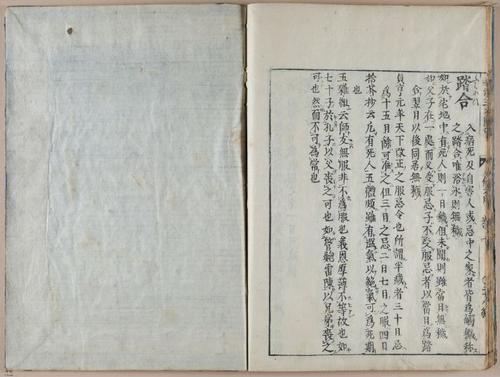 踏合
入病死及自害人或忌中之家者皆為觸穢称
之踏合唯浴水則無穢
如於宅地中有死人則一日穢但未聞則雖當日無穢
如父子在一處而父受服忌子不受服忌者以當日為踏
合翌月以後同居無穢
貞享元年天下改正之服忌令也所謂半減者三十日忌
為十五日餘可准之但三日之忌二日七日之服四日
也
拾芥抄云凡有死人五體頗雖有温氣以絶氣可為死期
五雜組云師友無服非不為服也義恩厚薄不等故也如
七十子於孔子以父喪之可也如管鮑雷陳以兄弟喪之
可也然而不可為常也